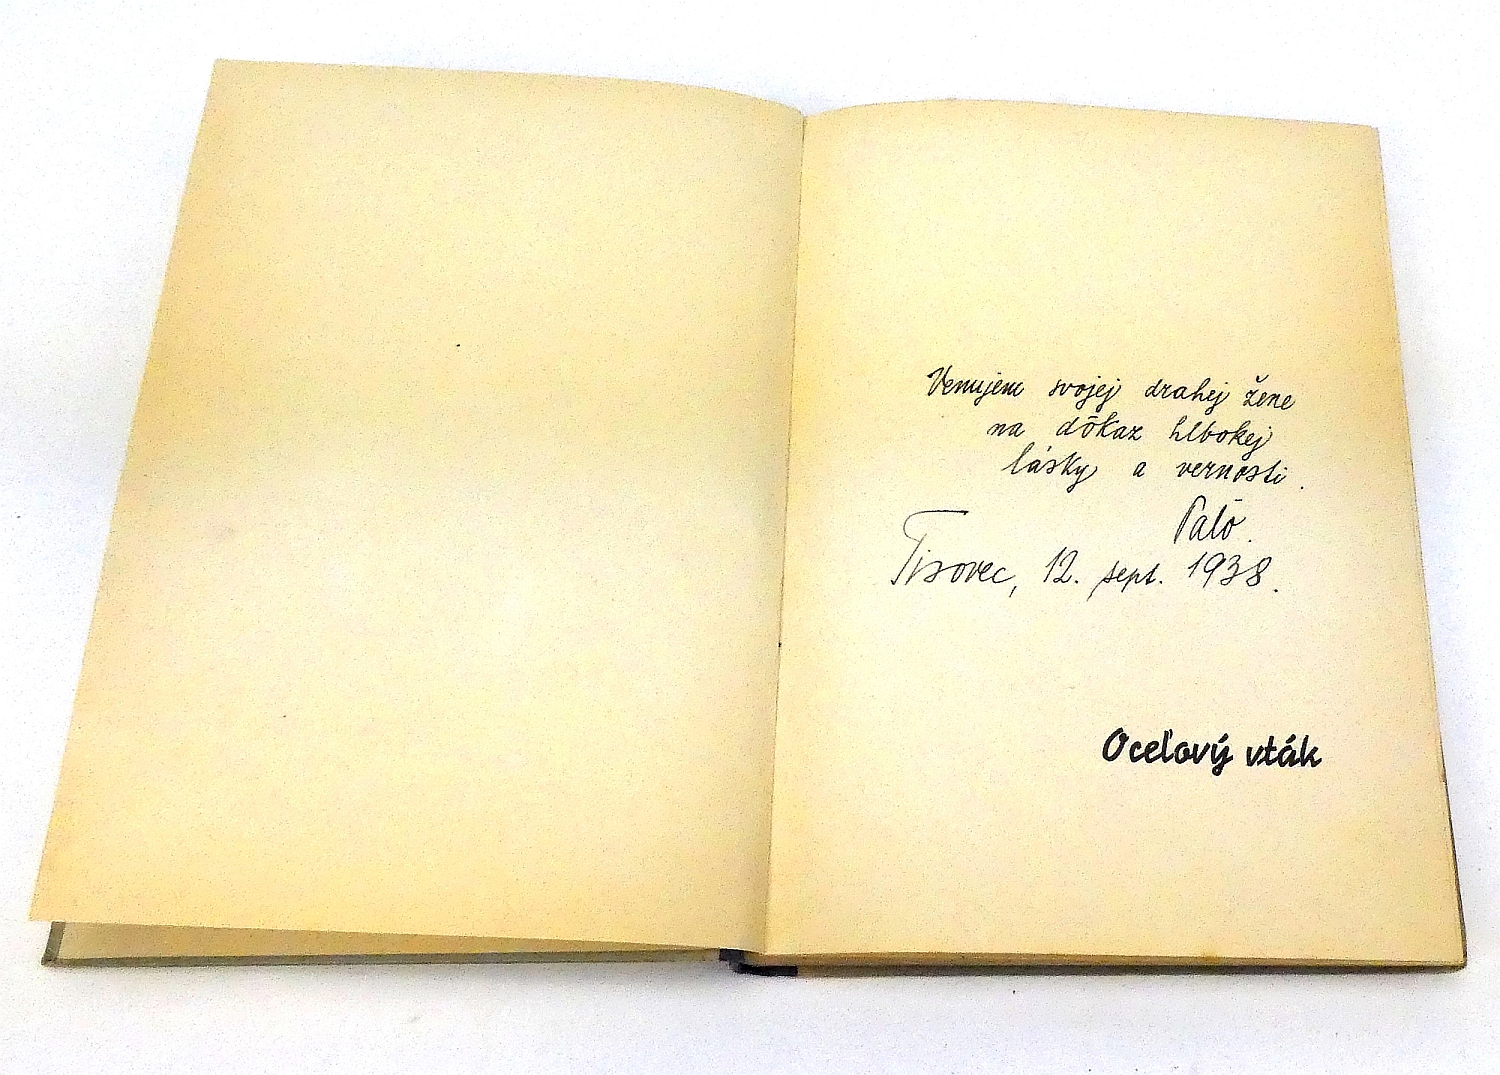 Venujem svojej drahej žene
na dôkaz hlbokej
lásky a vernosti.
Palo.
Tisovec, 12. sept. 1938.
Oceľový vták